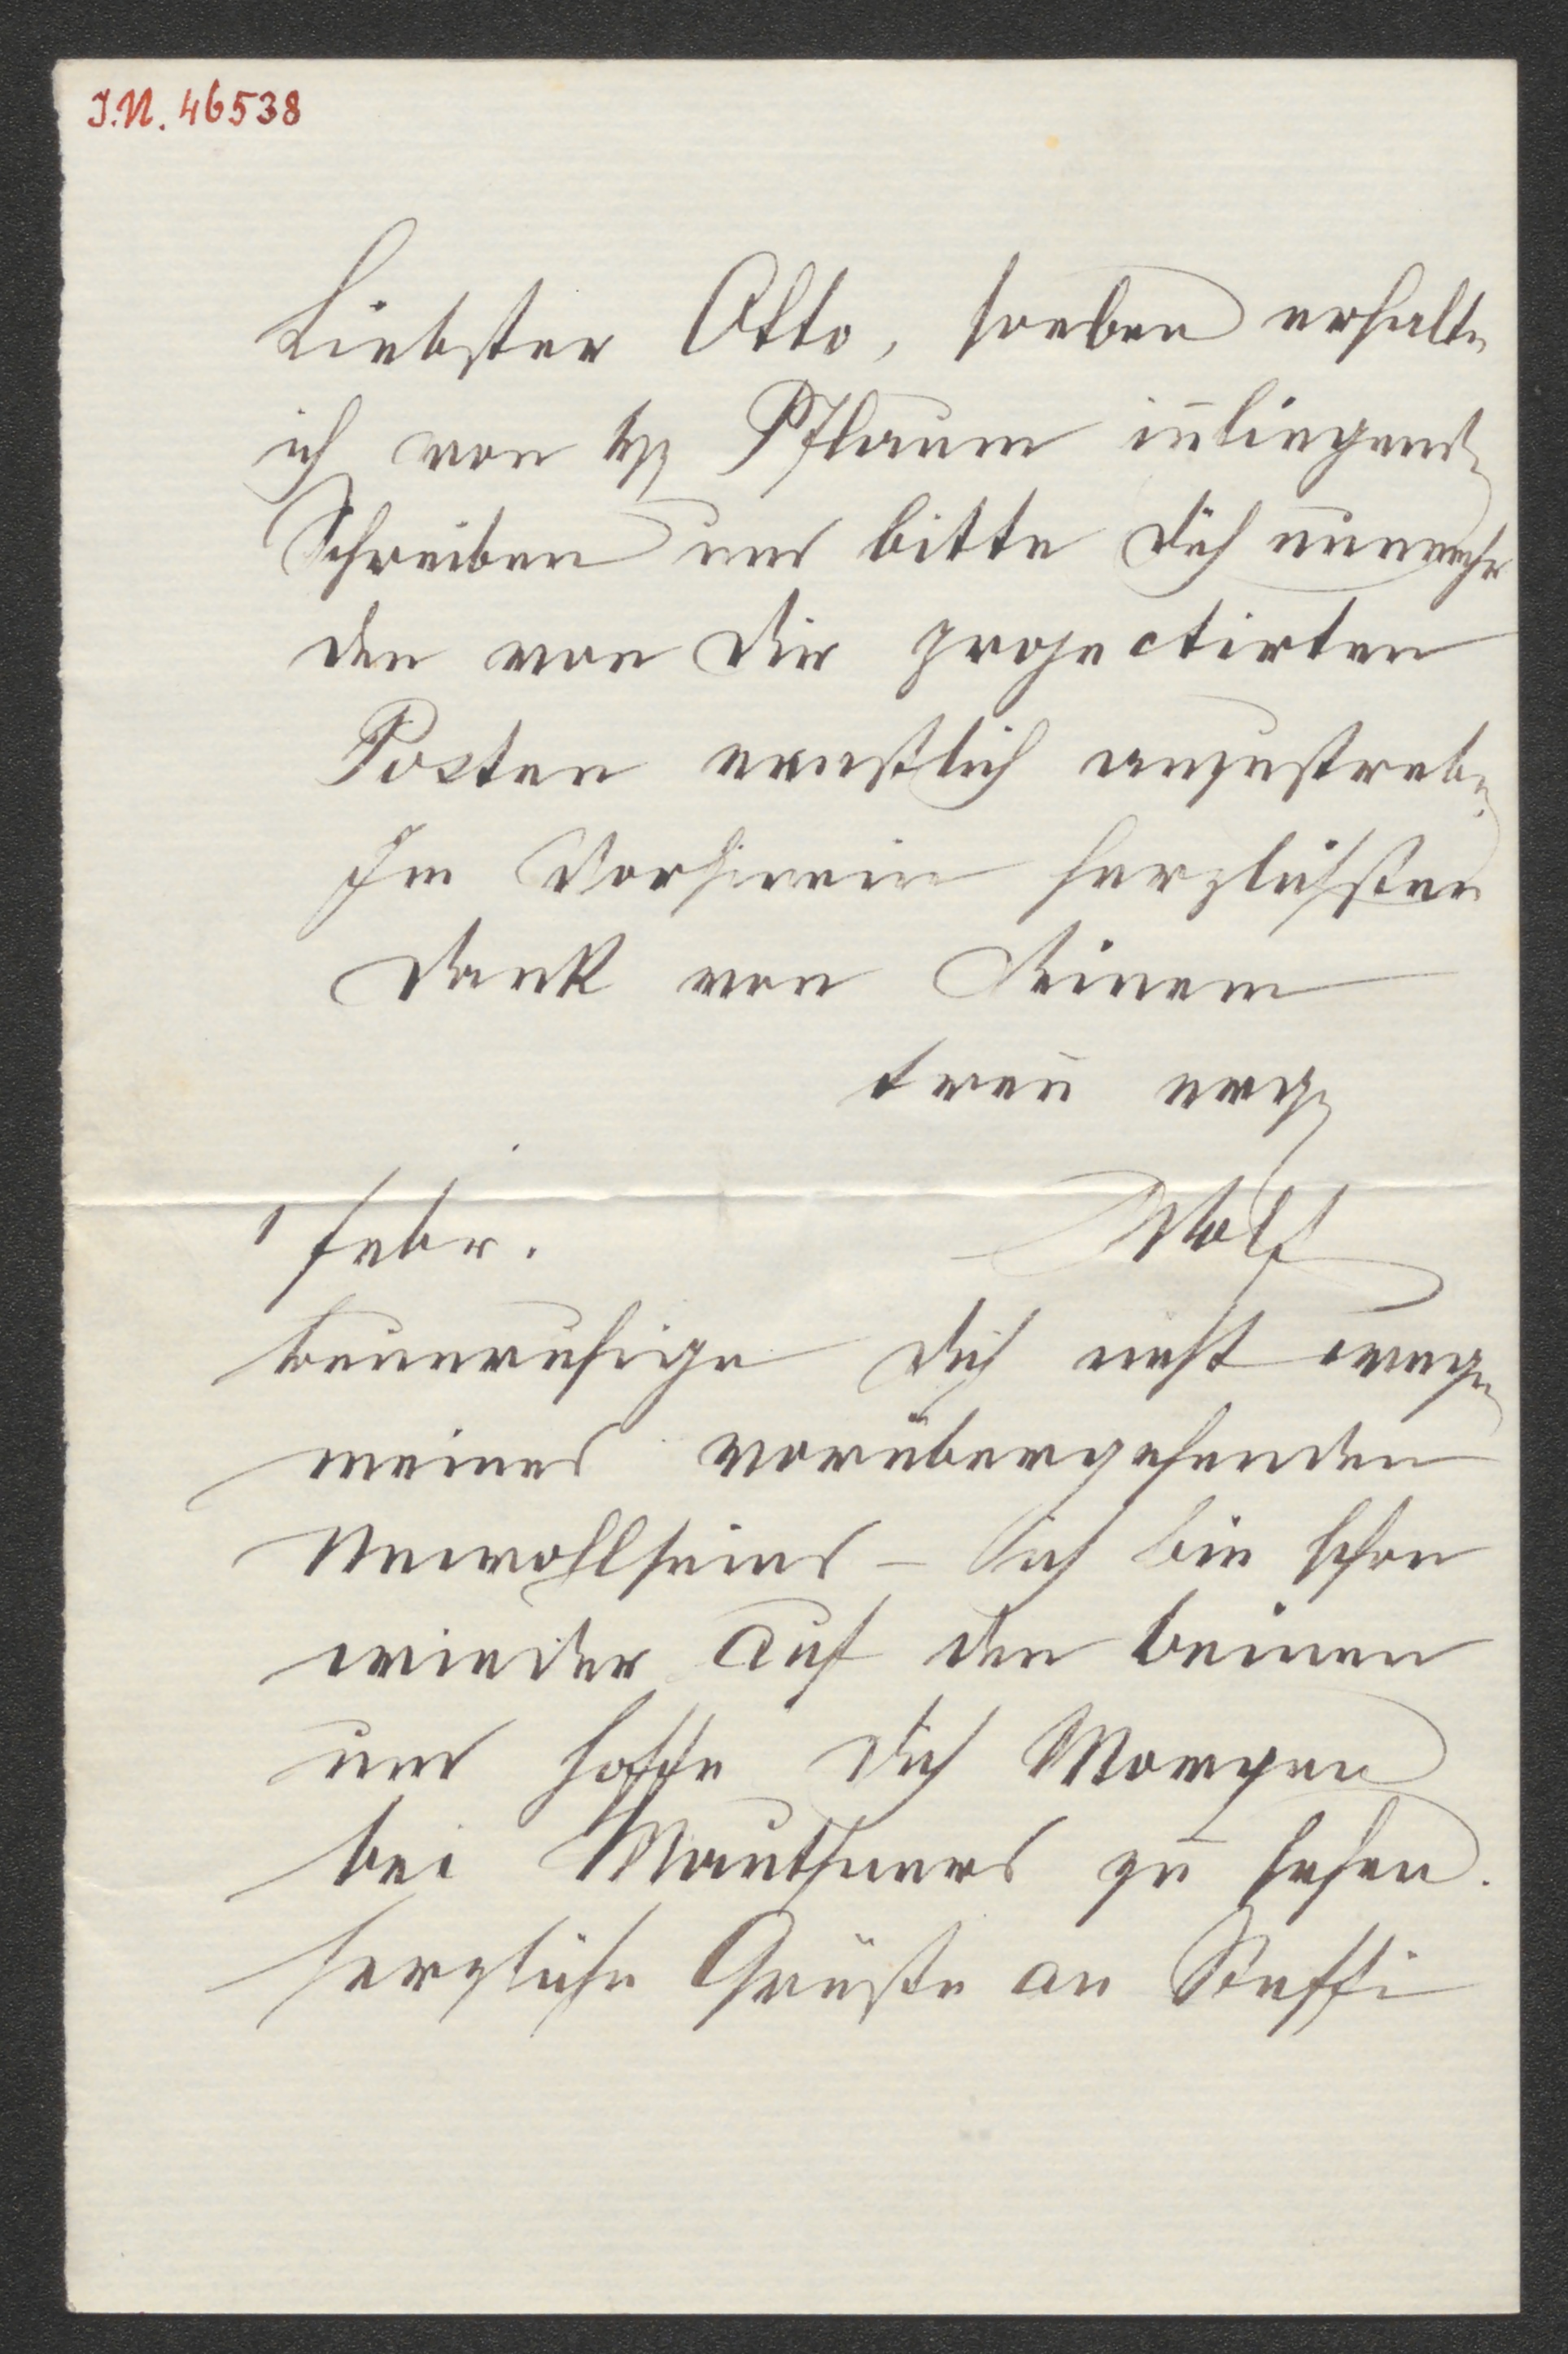 I.N. 46538
Liebster Otto, soeben erhalte
ich von Pflaum inliegendes
Schreiben und bitte Dich nunmehr
den von Dir projectirten
Posten ernstlich anzustreben.
Im Vorhinein herzlichsten
Dank von Deinem
treu erg.
1 Febr. Wolf
beunruhige Dich nicht wegen
meines vorübergehenden
Unwohlseins – Ich bin schon
wieder auf den beinen
und hoffe Dich Morgen
bei Mauthners zu sehen.
herzliche Grüße an Steffi